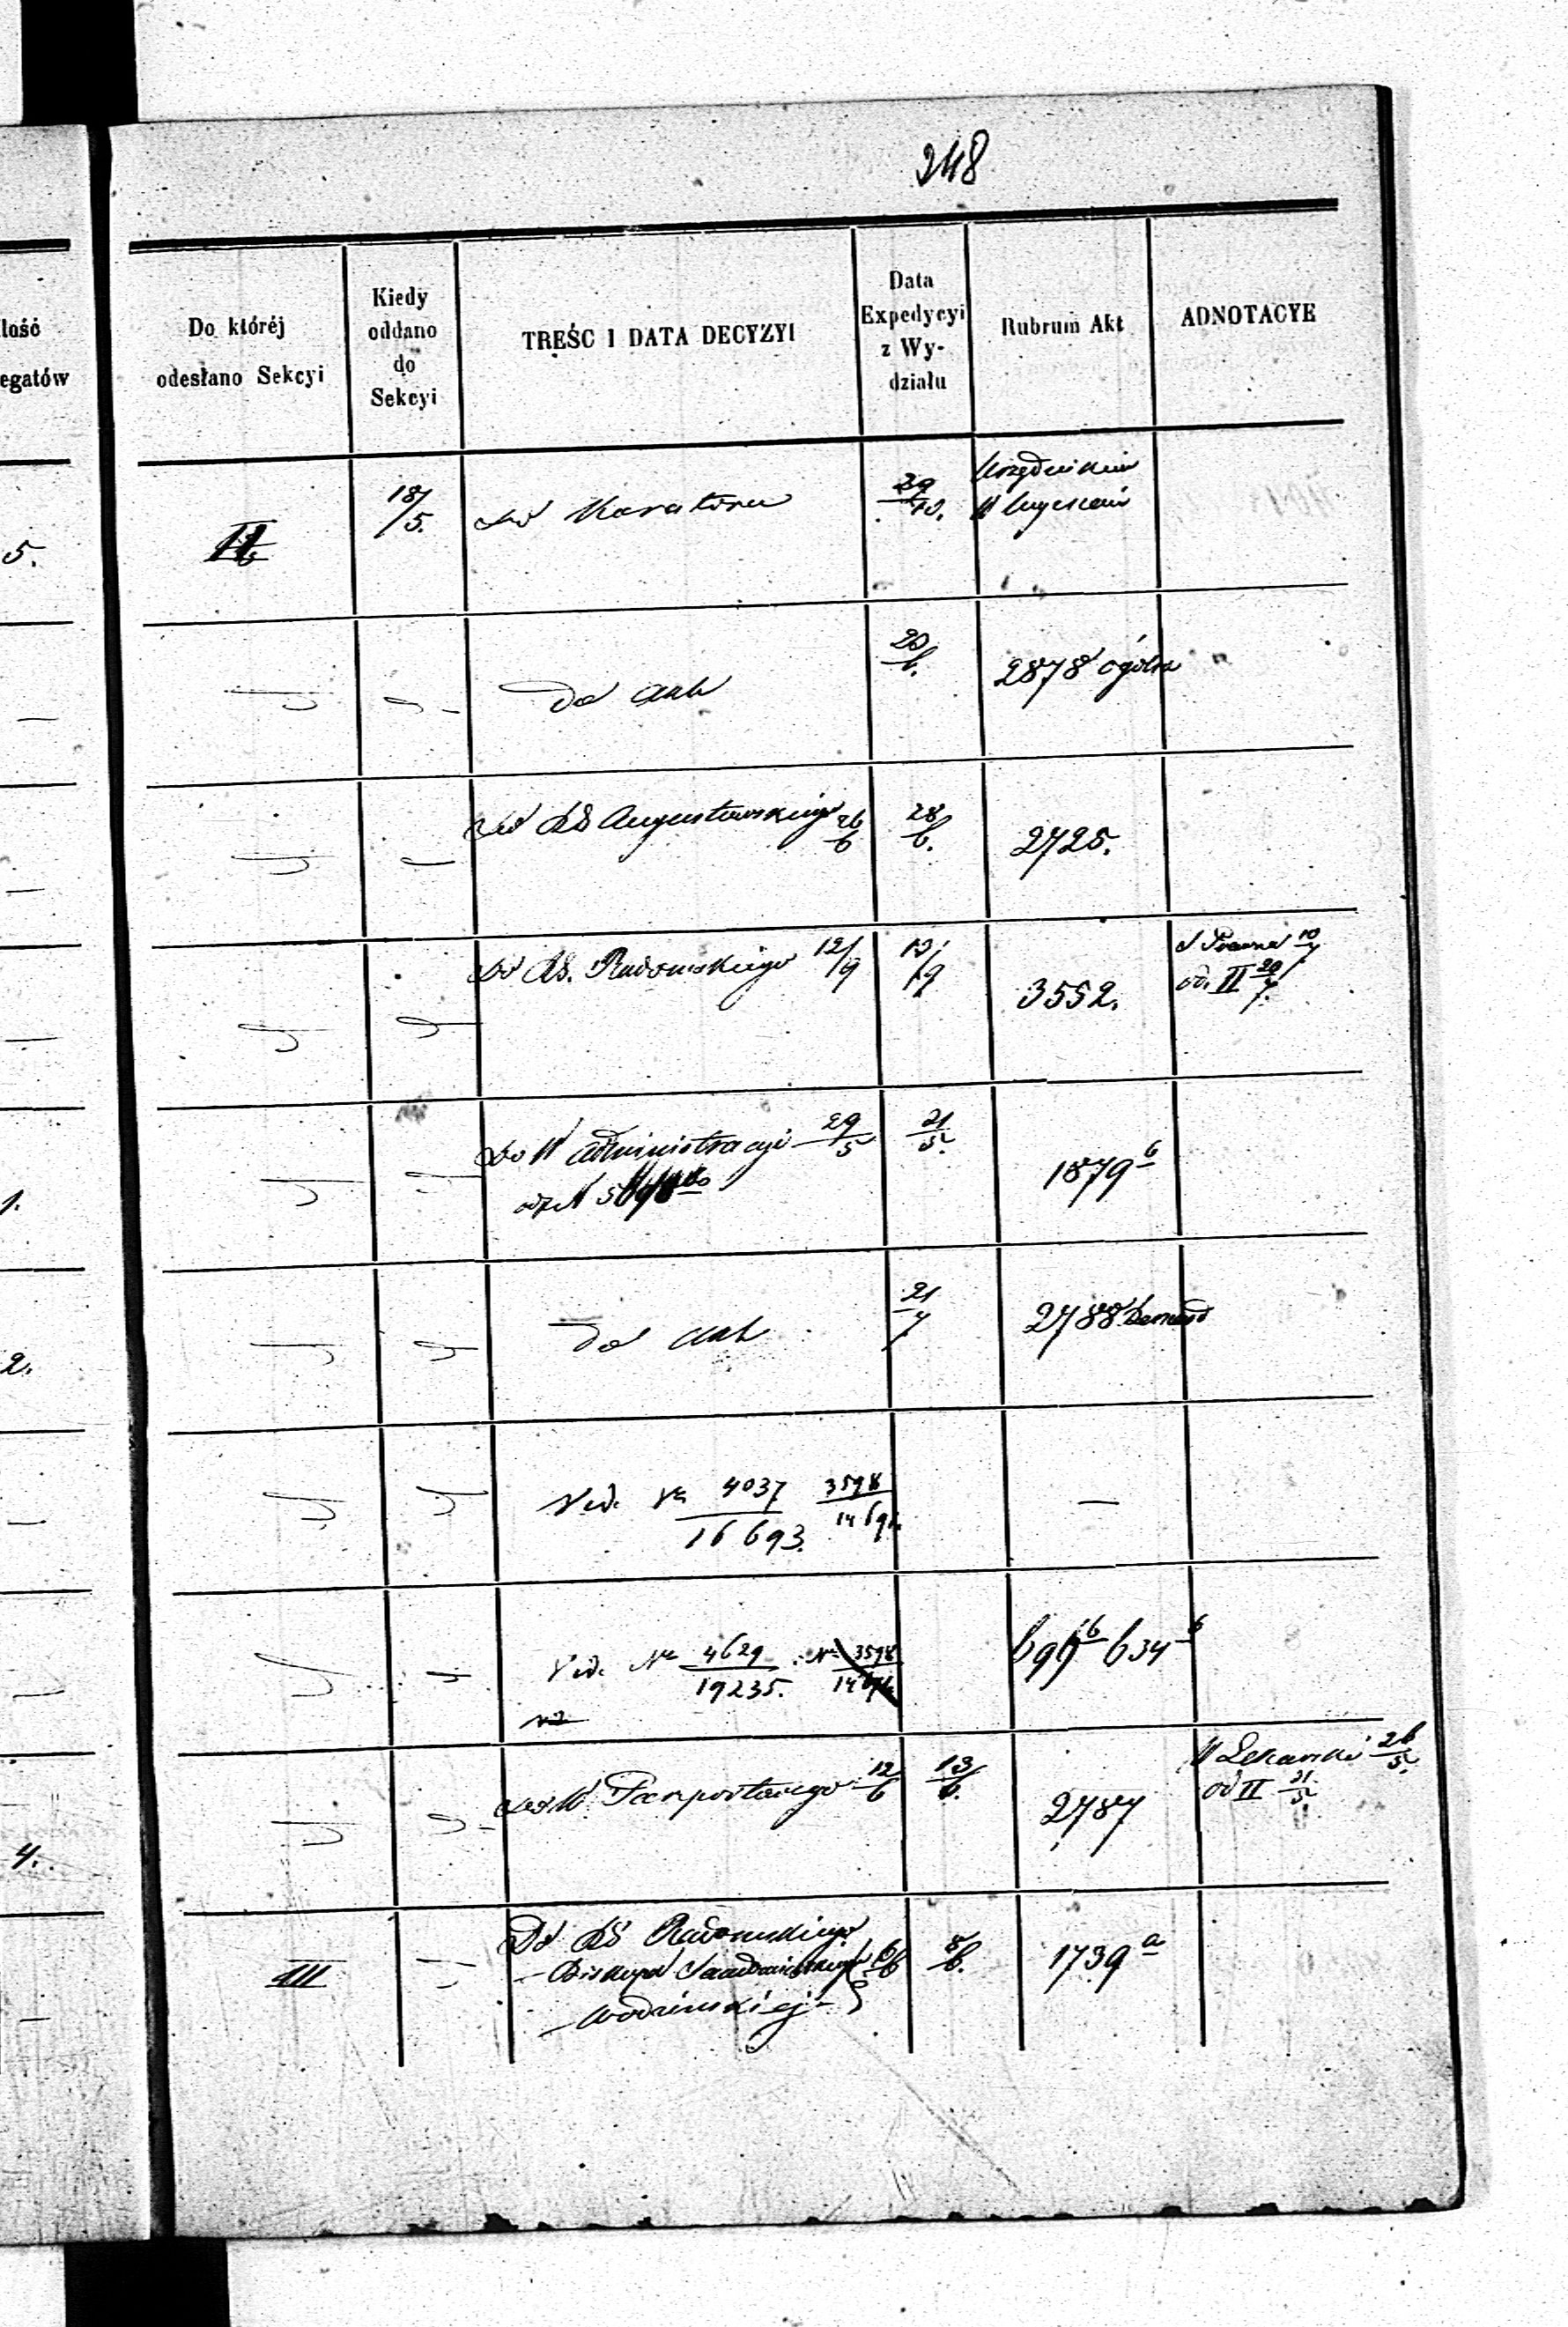 248
lość
egatów
Do któréj
odesłano Sekcyi
Kiedy
oddano
do
Sekcyi
TREŚC I DATA DECYZYI
Data
Expedycyi
z Wy-
działu
Rubrum Akt
ADNOTACYE
5.
18/5.
do Kuratora
29/10.
Urzędników
do akt
20/6.
2878 ogólne
do RG Augustowskiego 26/6
28/6.
2725.
do RG. Radomskiego 12/9
13/9
3552.
10/7
od. II 20/7.
1.
do W Administracyi 29/5
31/5.
1879 b
2.
do akt
21/7
2788
Vid. No 4037/16693. 3598/14691.
—
Vid. No 4629/19235. No 3598
699 b 634 b
4.
do W. Paszportowego 12/6
13/6.
2787
W Lekarski 26/5.
od II 31/5
III
Do RG Radomskiego
– Biskupa Sandomirskiego 6/6
8/6.
1739 a